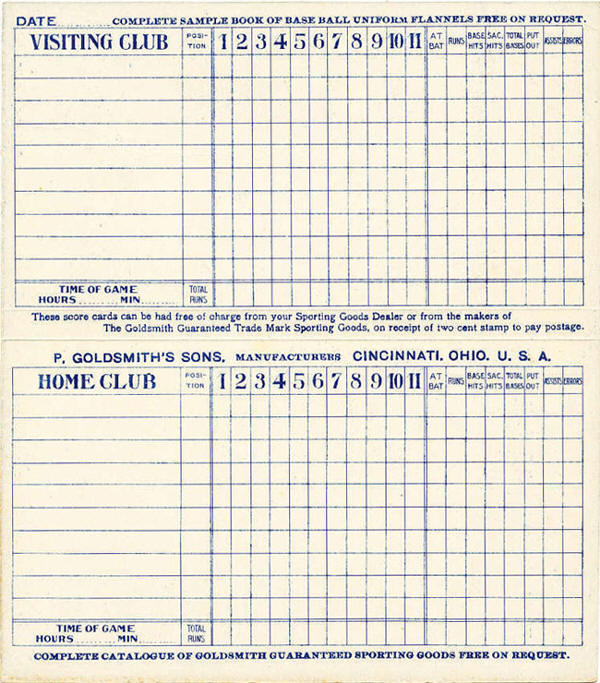 DATE............ COMPLETE SAMPLE BOOK OF BASE BALL UNIFORM FLANNELS FREE ON REQUEST.
VISITING CLUB POSI-TION 1 2 3 4 5 6 7 8 9 10 11 AT BAT RUNS BASE HITS SAC. HITS TOTAL BASES PUT OUT ASSISTS ERRORS
TIME OF GAME TOTAL
HOURS.........MIN......... RUNS
These score cards can be had free of charge from your Sporting Goods Dealer or from the makers of
The Goldsmith Guaranteed Trade Mark Sporting Goods, on receipt of two cent stamp to pay postage.
P. GOLDSMITH'S SONS, MANUFACTURERS CINCINNATI. OHIO. U. S. A.
HOME CLUB POSI-TION 1 2 3 4 5 6 7 8 9 10 11 AT BAT RUNS BASE HITS SAC. HITS TOTAL BASES PUT OUT ASSISTS ERRORS
TIME OF GAME TOTAL
HOURS.........MIN......... RUNS
COMPLETE CATALOGUE OF GOLDSMITH GUARANTEED SPORTING GOODS FREE ON REQUEST.